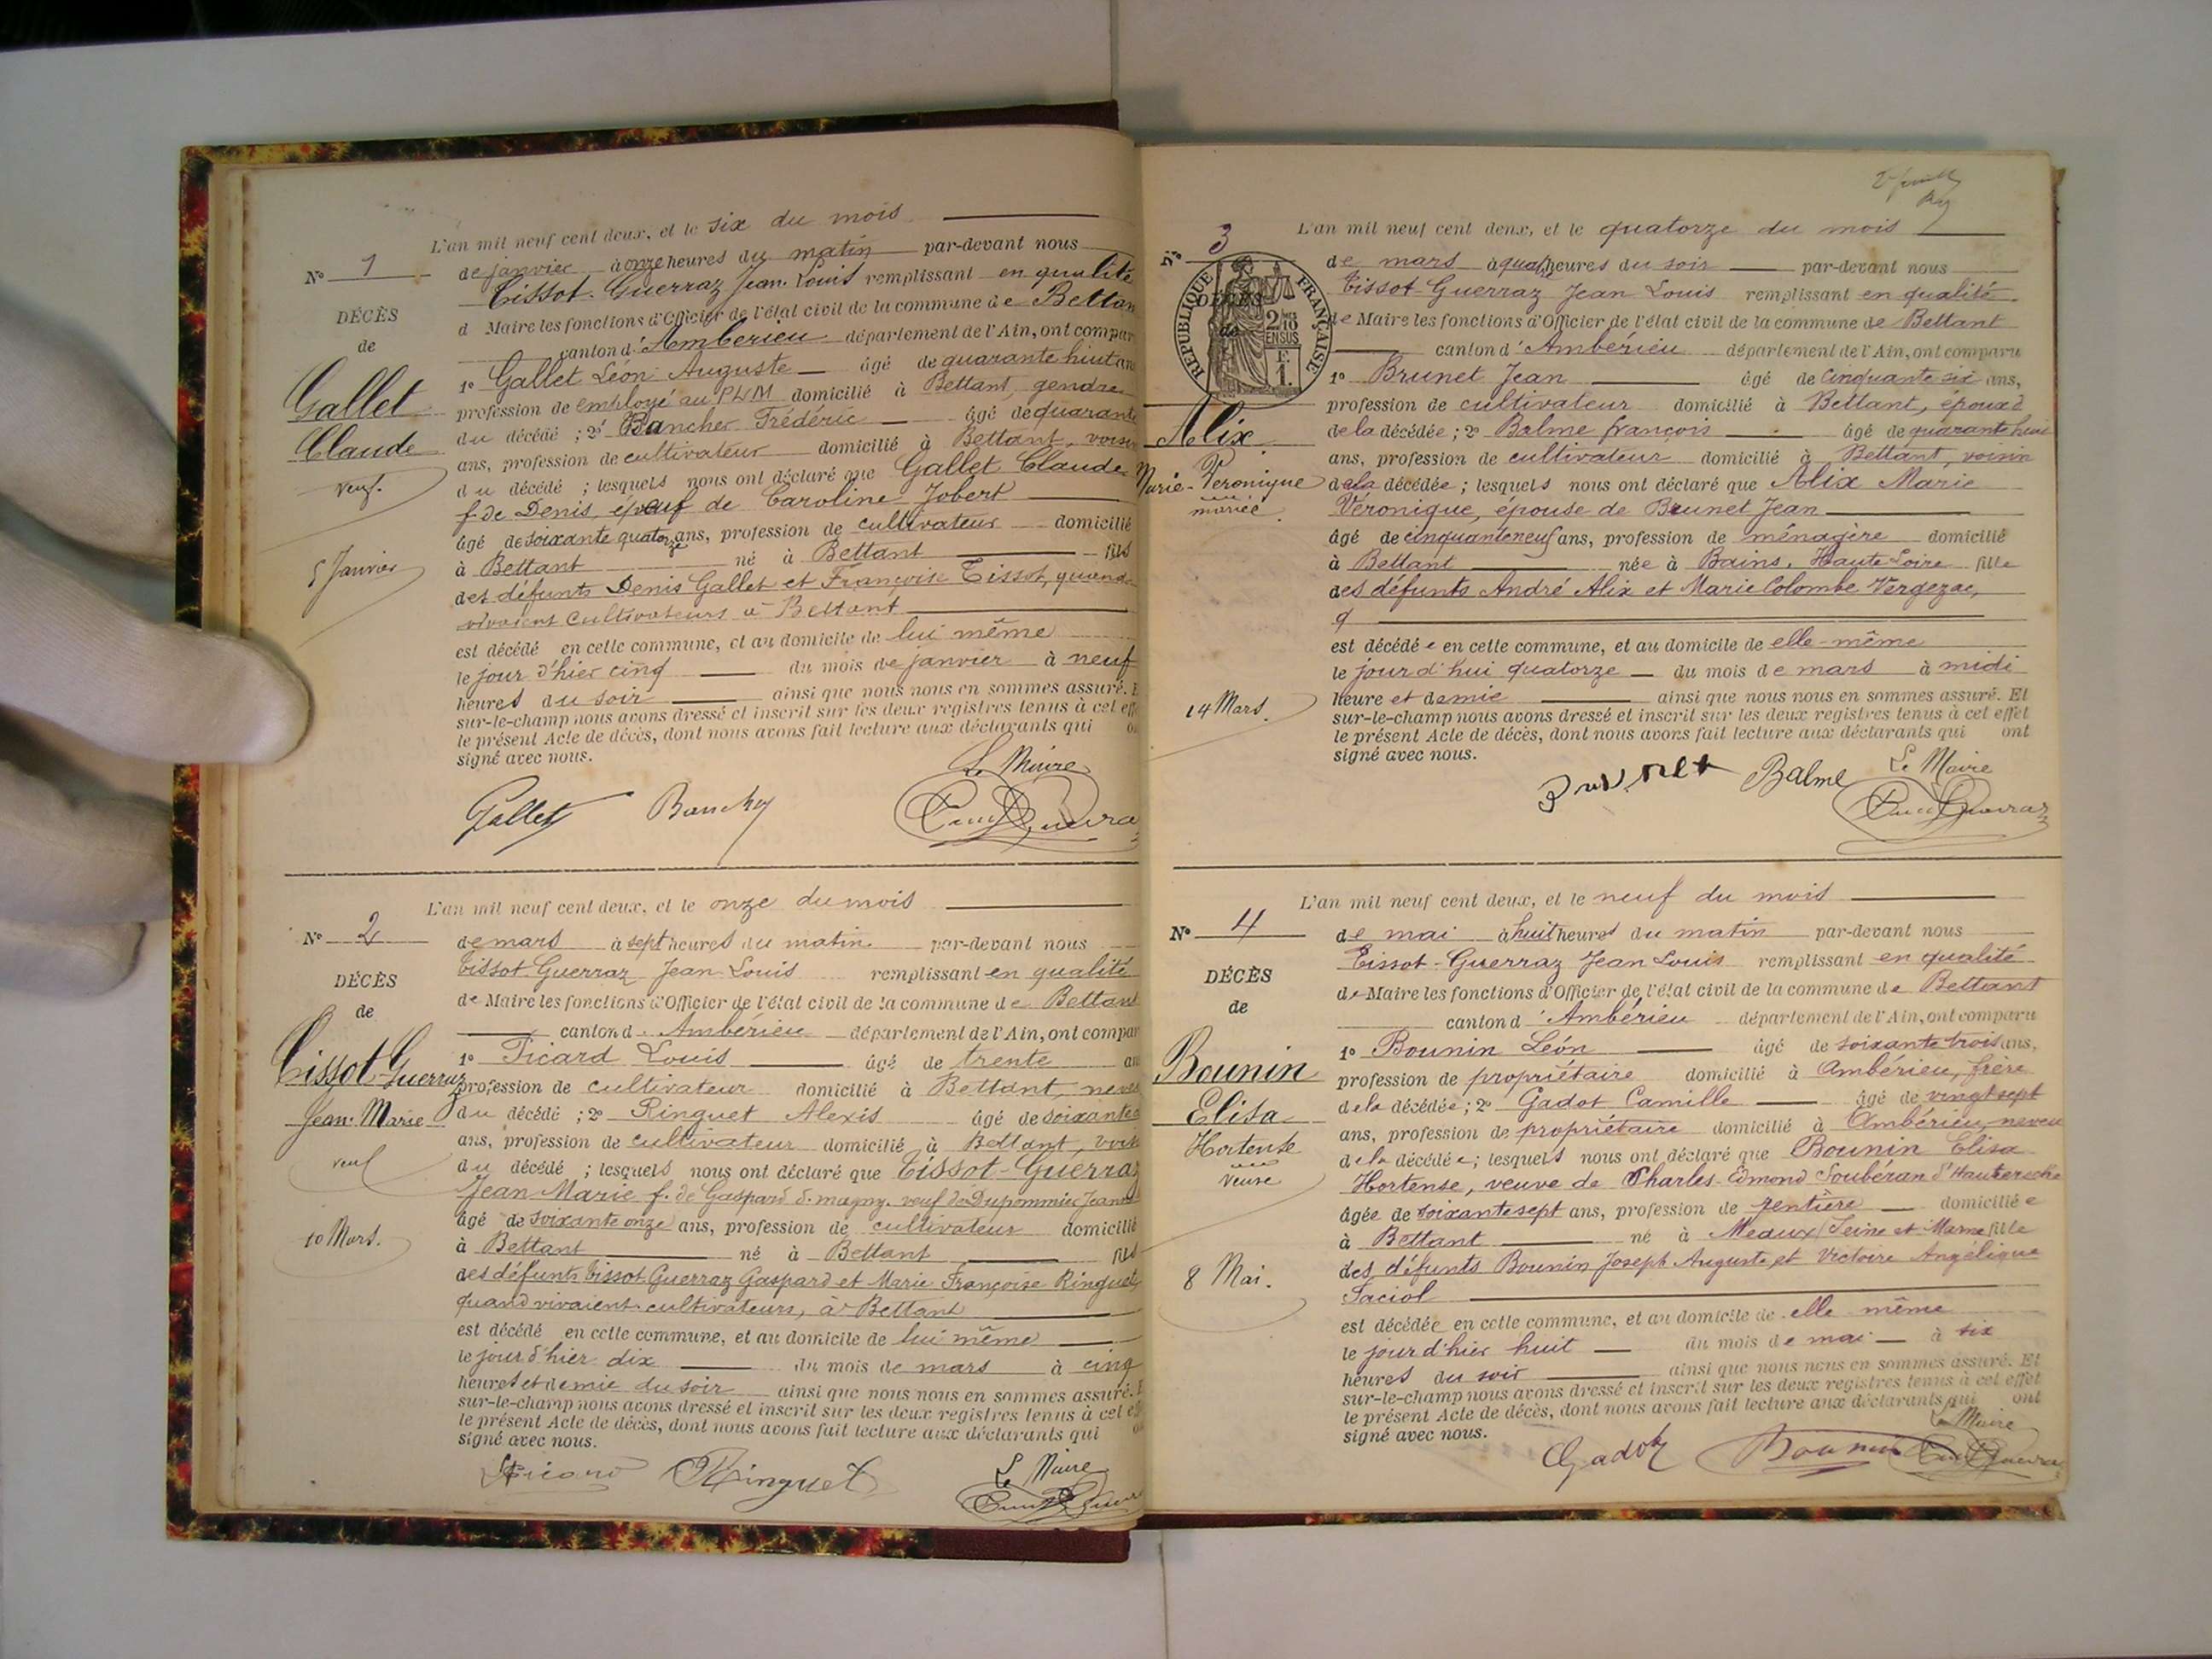 L'an mil neuf cent deux, et le six du mois
N° 1
de janvier à onze heures du matin par-devant nous
Tissot-Guerraz Jean-Louis remplissant en qualité
DÉCÈS
d Maire les fonctions d'Officier de l'état civil de la commune de Bettan
de
canton d'Ambérieu département de l'Ain, ont compar
Gallet
1° Gallet Léon Auguste âgé de quarante huit ans
profession de employé au PLM domicilié à Bettant, gendre
Claude
du décédé ; 2° Bancher Frédéric âgé de quarante
ans, profession de cultivateur domicilié à Bettant, voisin
veuf.
du décédé ; lesquels nous ont déclaré que Gallet Claude
f. de Denis, veuf de Caroline Jobert
âgé de soixante quatorze ans, profession de cultivateur domicilié
5 Janvier
à Bettant né à Bettant fils
des défunts Denis Gallet et Françoise Tissot, quand
vivaient cultivateurs à Bettant
est décédé en cette commune, et au domicile de lui même
le jour d'hier cinq du mois de janvier à neuf
heures du soir ainsi que nous nous en sommes assuré. E
sur-le-champ nous avons dressé et inscrit sur les deux registres tenus à cet eff
le présent Acte de décès, dont nous avons fait lecture aux déclarants qui o
signé avec nous.
Le Maire
Gallet
L'an mil neuf cent deux, et le onze du mois
N° 2
de mars à sept heures du matin par-devant nous
Tissot Guerraz Jean-Louis remplissant en qualité
DÉCÈS
de Maire les fonctions d'Officier de l'état civil de la commune de Bettant
de
canton d Ambérieu département de l'Ain, ont compar
Tissot-Guerraz
1° Ficard Louis âgé de trente an
profession de cultivateur domicilié à Bettant, neveu
Jean-Marie
du décédé ; 2° Ringuet Alexis âgé de soixante
ans, profession de cultivateur domicilié à Bettant, voisin
veuf
du décédé ; lesquels nous ont déclaré que Tissot-Guerraz
Jean Marie f. de Gaspard veuf de Dupommie Jeanne
âgé de soixante onze ans, profession de cultivateur domicilié
10 Mars.
à Bettant né à Bettant fils
des défunts Tissot Guerraz Gaspard et Marie Françoise Ringuet,
quand vivaient cultivateurs, à Bettant
est décédé en cette commune, et au domicile de lui même
le jour d'hier dix du mois de mars à cinq
heures et demie du soir ainsi que nous nous en sommes assuré. E
sur-le-champ nous avons dressé et inscrit sur les deux registres tenus à cet e
le présent Acte de décès, dont nous avons fait lecture aux déclarants qui o
signé avec nous.
Ficard Ringuet
Le Maire
L'an mil neuf cent deux, et le quatorze du mois
N° 3
de mars à quatre heures du soir par-devant nous
Tissot-Guerraz Jean Louis remplissant en qualité
RÉPUBLIQUE FRANÇAISE
DÉCÈS
2/10 EN SUS
F. 1.
de Maire les fonctions d'Officier de l'état civil de la commune de Bettant
de
canton d'Ambérieu département de l'Ain, ont comparu
1° Brunet Jean âgé de cinquante six ans,
profession de cultivateur domicilié à Bettant, époux
Alix
de la décédée ; 2° Balme françois âgé de quarante huit
ans, profession de cultivateur domicilié à Bettant, voisin
Marie-Véronique
de la décédée ; lesquels nous ont déclaré que Alix Marie
mariée
Véronique, épouse de Brunet Jean
âgé de cinquante neuf ans, profession de ménagère domicilié
à Bettant née à Bains, Haute Loire fille
des défunts André Alix et Marie Colombe Vergezac,
est décédée en cette commune, et au domicile de elle-même
le jour d'hui quatorze du mois de mars à midi
14 Mars.
heure et demie ainsi que nous nous en sommes assuré. Et
sur-le-champ nous avons dressé et inscrit sur les deux registres tenus à cet effet
le présent Acte de décès, dont nous avons fait lecture aux déclarants qui ont
signé avec nous.
Le Maire
Brunet Balme
L'an mil neuf cent deux, et le neuf du mois
N° 4
de mai à huit heures du matin par-devant nous
Tissot-Guerraz Jean Louis remplissant en qualité
DÉCÈS
de Maire les fonctions d'Officier de l'état civil de la commune de Bettant
de
canton d'Ambérieu département de l'Ain, ont comparu
Bounin
1° Bounin Léon âgé de soixante trois ans,
profession de propriétaire domicilié à Ambérieu, frère
Elisa
de la décédée ; 2° Gadot Camille âgé de vingt sept
ans, profession de propriétaire domicilié à Ambérieu, neveu
Hortense
de la décédée ; lesquels nous ont déclaré que Bounin Elisa
veuve
Hortense, veuve de Charles-Edmond Soubéran d'Hauteroche
âgée de soixante sept ans, profession de rentière domiciliée
à Bettant né à Meaux Seine et Marne fille
8 Mai.
des défunts Bounin Joseph Auguste et Victoire Angélique
Saciol
est décédée en cette commune, et au domicile de elle même
le jour d'hier huit du mois de mai à six
heures du soir ainsi que nous nous en sommes assuré. Et
sur-le-champ nous avons dressé et inscrit sur les deux registres tenus à cet effet
le présent Acte de décès, dont nous avons fait lecture aux déclarants qui ont
signé avec nous.
Le Maire
Gadot Bounin